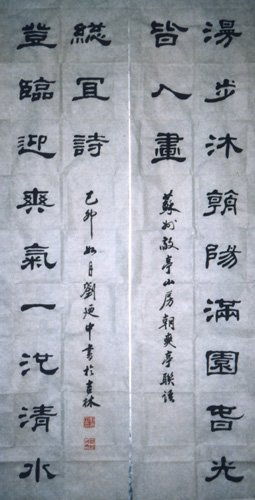 漫步沐朝陽滿園旾光
皆入畫
蘇州敬亭山房朝爽亭聯語
登臨迎爽氣一池清水
緫冝詩
己卯如月劉廼中書於吉林